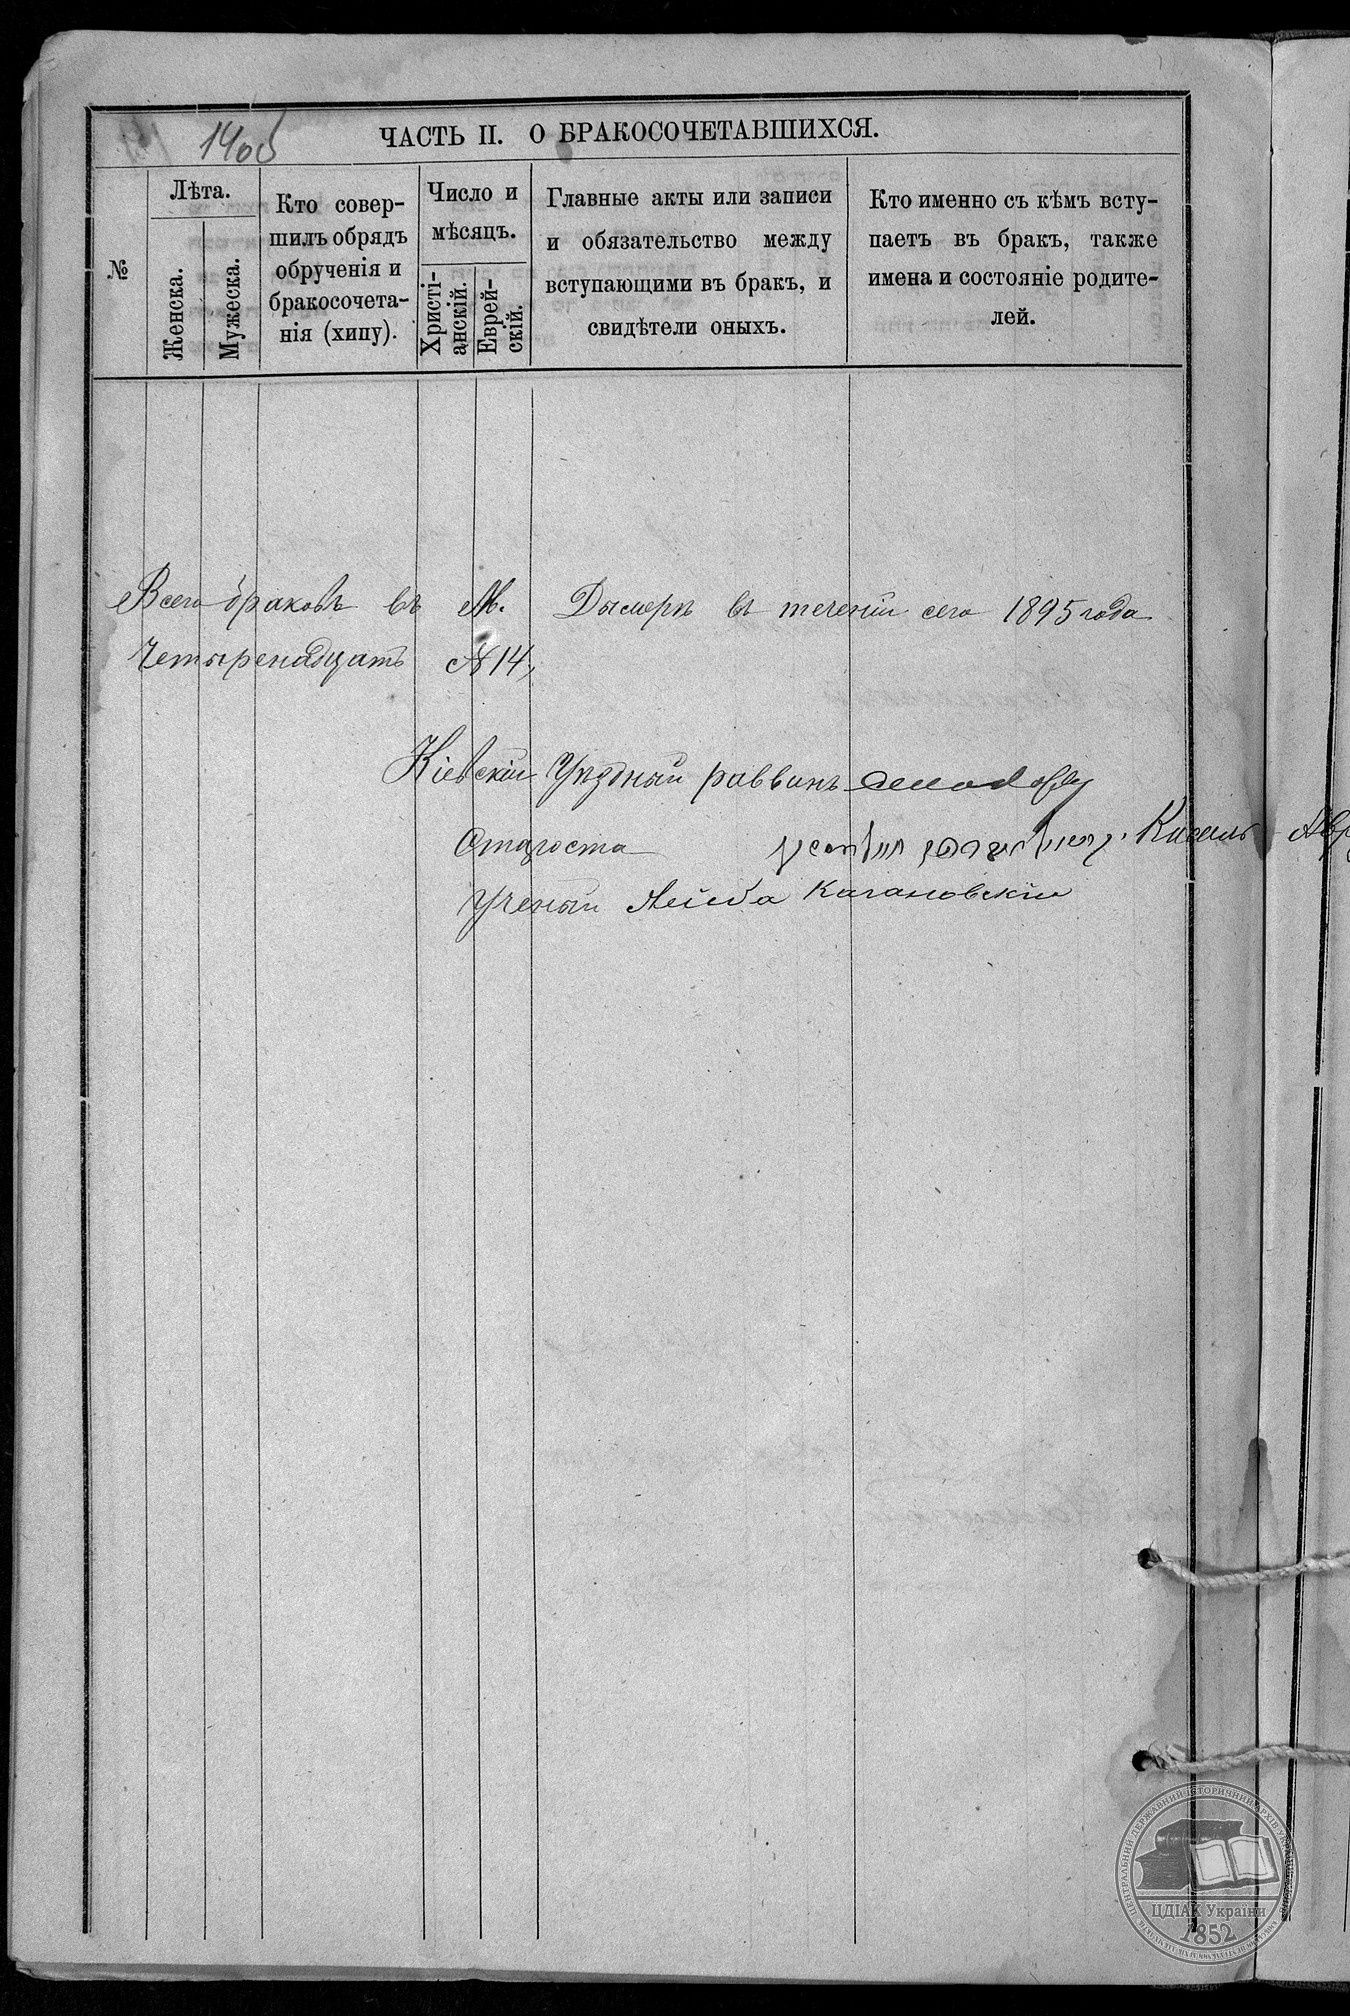 140об
ЧАСТЬ II. О БРАКОСОЧЕТАВШИХСЯ.
№
Лѣта.
Женска.
Мужеска.
Кто совер-
шилъ обрядъ
обрученія и
бракосочета-
нія (хипу).
Число и
мѣсяцъ.
Христі-
анскій.
Еврей-
скій.
Главные акты или записи
и обязательство между
вступающими въ бракъ, и
свидѣтели оныхъ.
Кто именно съ кѣмъ всту-
паетъ въ бракъ, также
имена и состояніе родите-
лей.
Всего браковъ въ М. Дымерѣ въ теченіи сего 1895 года
Четыренадцать №14,
Кіевскій Уѣздный раввинъ
Староста Кисель Авр
Ученый Лейба Кагановскій
ЦЕНТРАЛЬНИЙ ДЕРЖАВНИЙ ІСТОРИЧНИЙ АРХІВ УКРАЇНИ
ЦДІАК України
1852